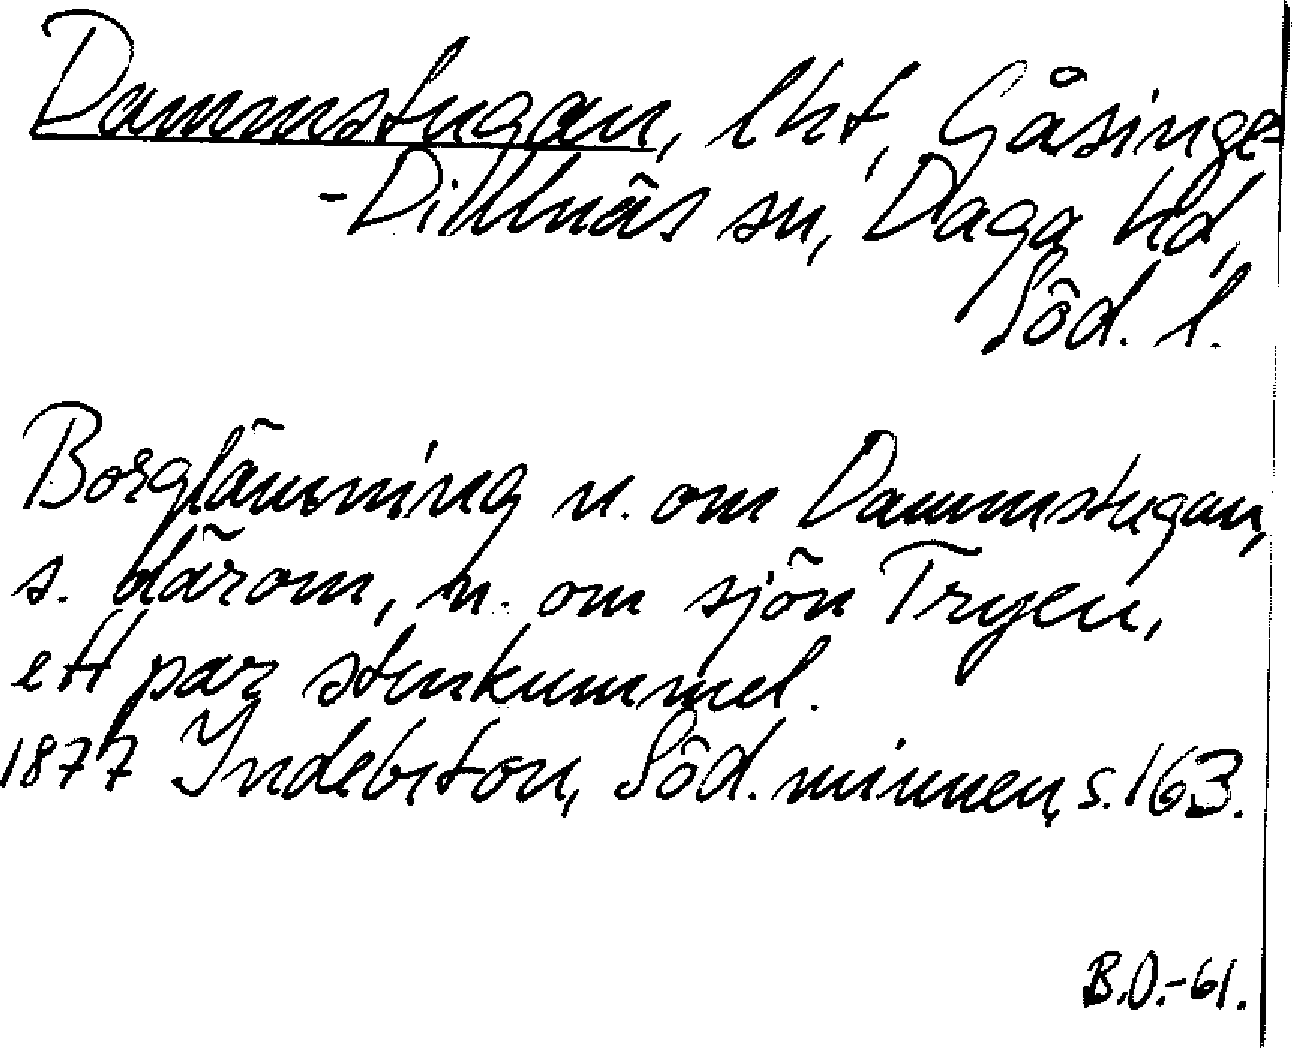 Dammstugan, lht, Gåsinge-
-Dillnäs sn, Daga hd,
Söd. l.
Borglämning n. om Dammstugan,
s. därom, n. om sjön Tryen,
ett par stenkummel.
1877 Indebetou, Söd. minnen, s. 163.
B.O.-61.